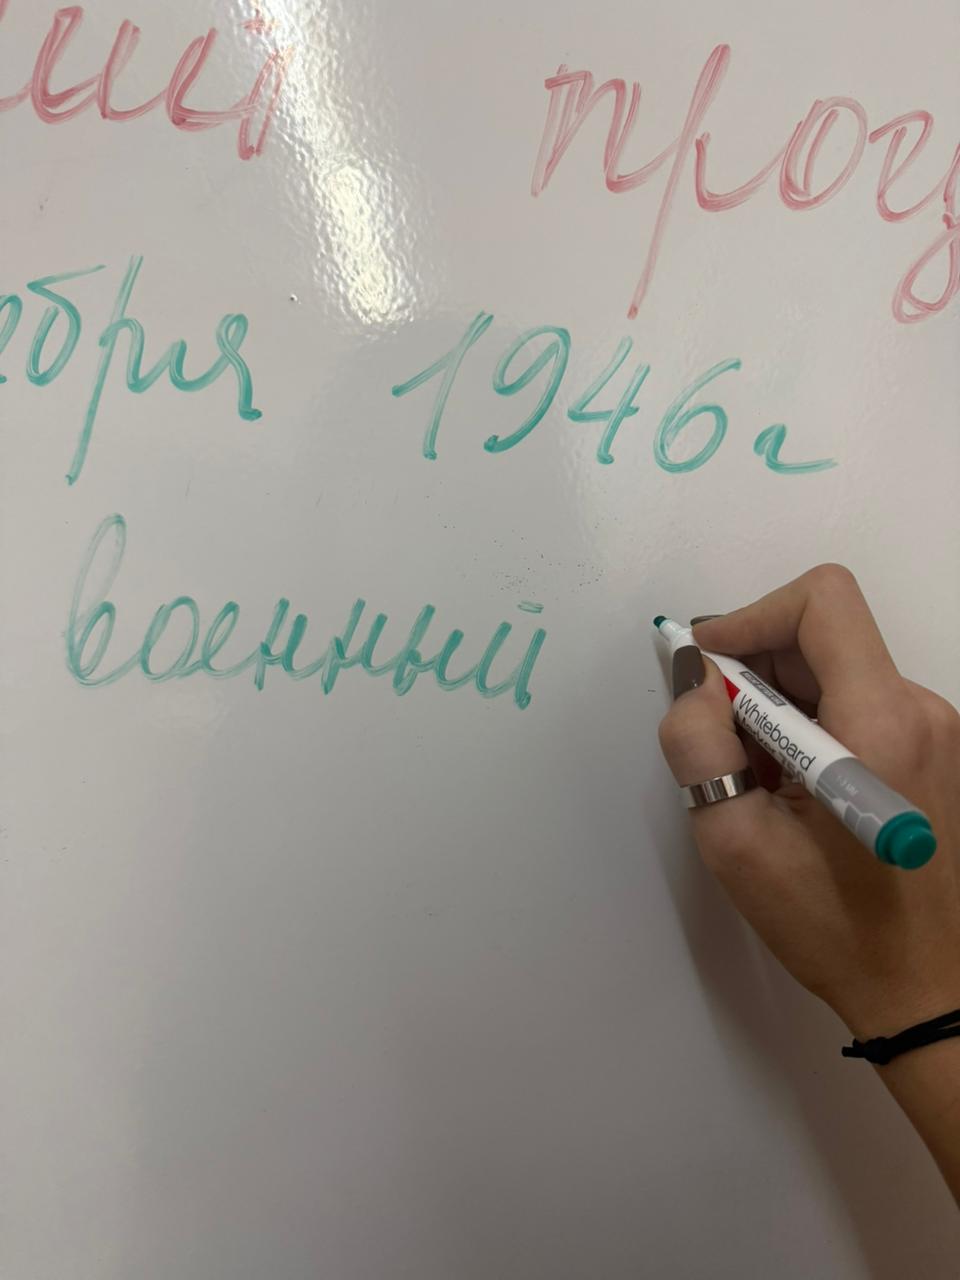 ший проц
ебря 1946г
военный
Whiteboard